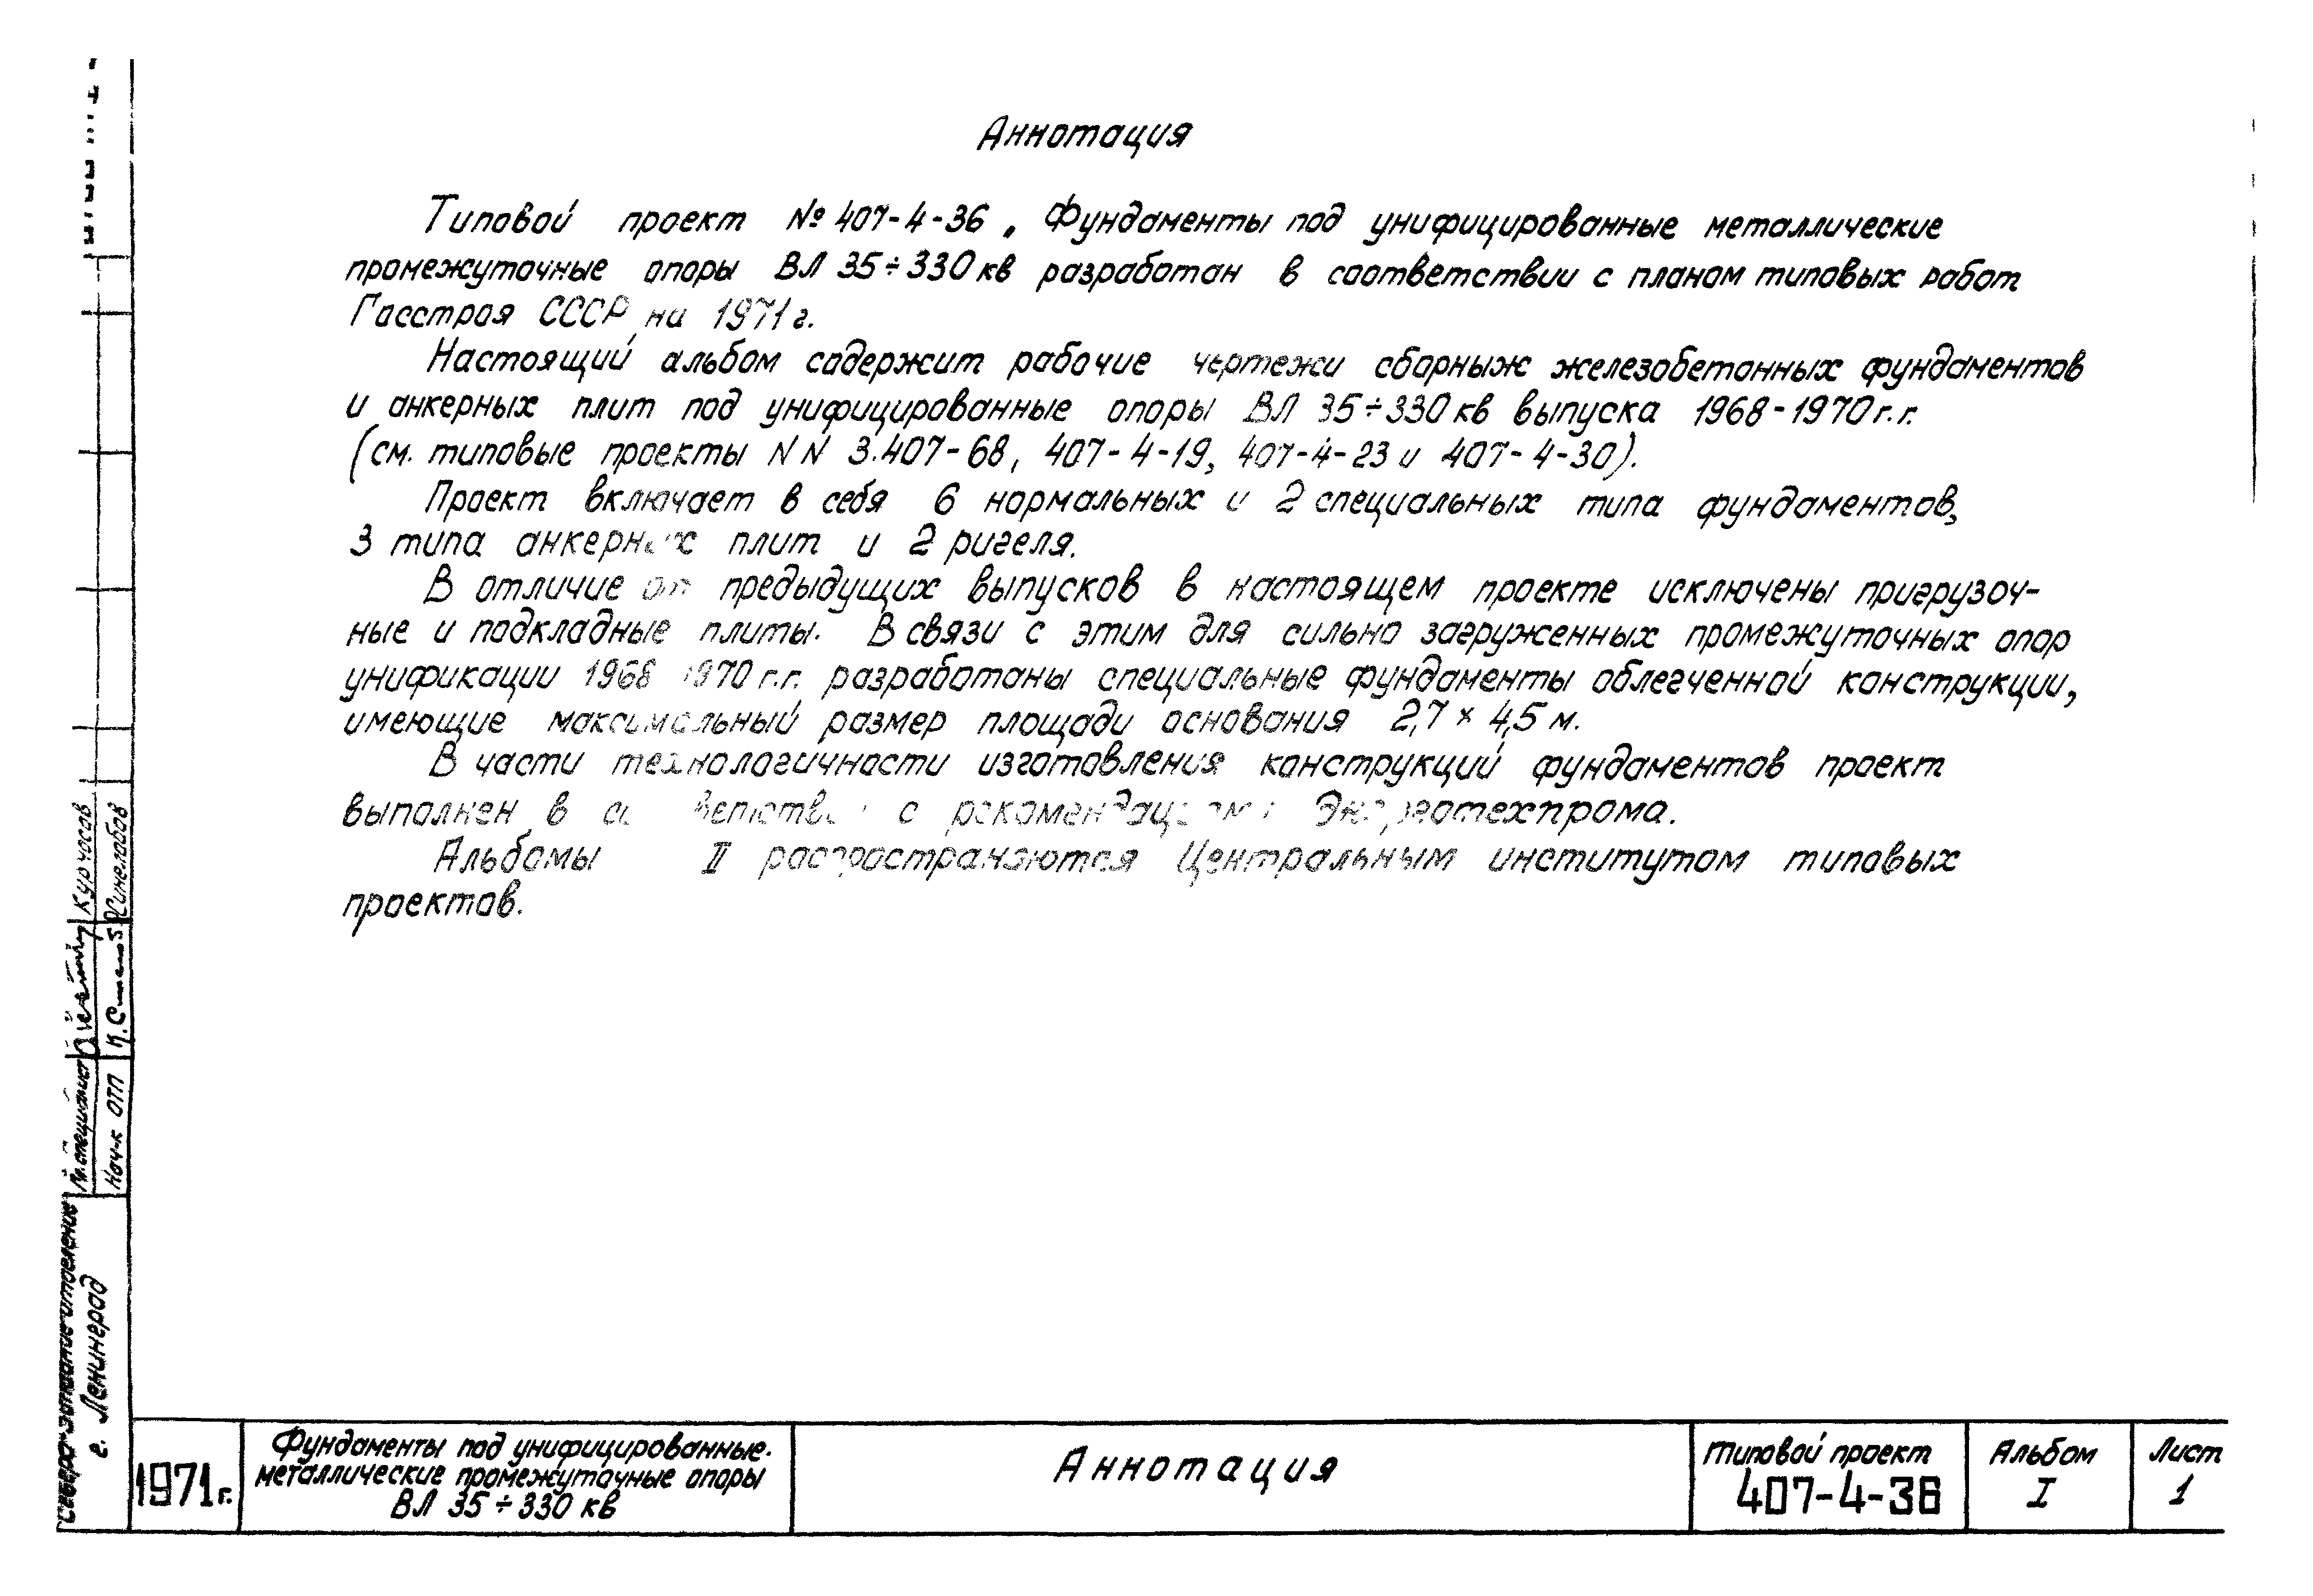 Аннотация
Типовой проект № 407-4-36 „ Фундаменты под унифицированные металлические
промежуточные опоры ВЛ 35÷330 кв разработан в соответствии с планом типовых работ
Госстроя СССР на 1971 г.
Настоящий альбом содержит рабочие чертежи сборных железобетонных фундаментов
и анкерных плит под унифицированные опоры ВЛ 35÷330 кв выпуска 1968-1970 г.г.
(см. типовые проекты NN 3.407-68, 407-4-19, 407-4-23 и 407-4-30).
Проект включает в себя 6 нормальных и 2 специальных типа фундаментов,
3 типа анкерных плит и 2 ригеля.
В отличие от предыдущих выпусков в настоящем проекте исключены пригрузоч-
ные и подкладные плиты. В связи с этим для сильно загруженных промежуточных опор
унификации 1968 1970 г.г. разработаны специальные фундаменты облегченной конструкции,
имеющие максимальный размер площади основания 2,7 × 4,5 м.
В части технологичности изготовления конструкций фундаментов проект
выполнен в соответствии с рекомендациями Энерготехпрома.
Альбомы II распространяются Центральным институтом типовых
проектов.
Курносов
Синелобов
Гл. специалист
Нач-к ОТП
Северо-западное отделение
г. Ленинград
1971 г.
Фундаменты под унифицированные
металлические промежуточные опоры
ВЛ 35 ÷ 330 кв
Аннотация
Типовой проект
407-4-36
Альбом
I
Лист
1